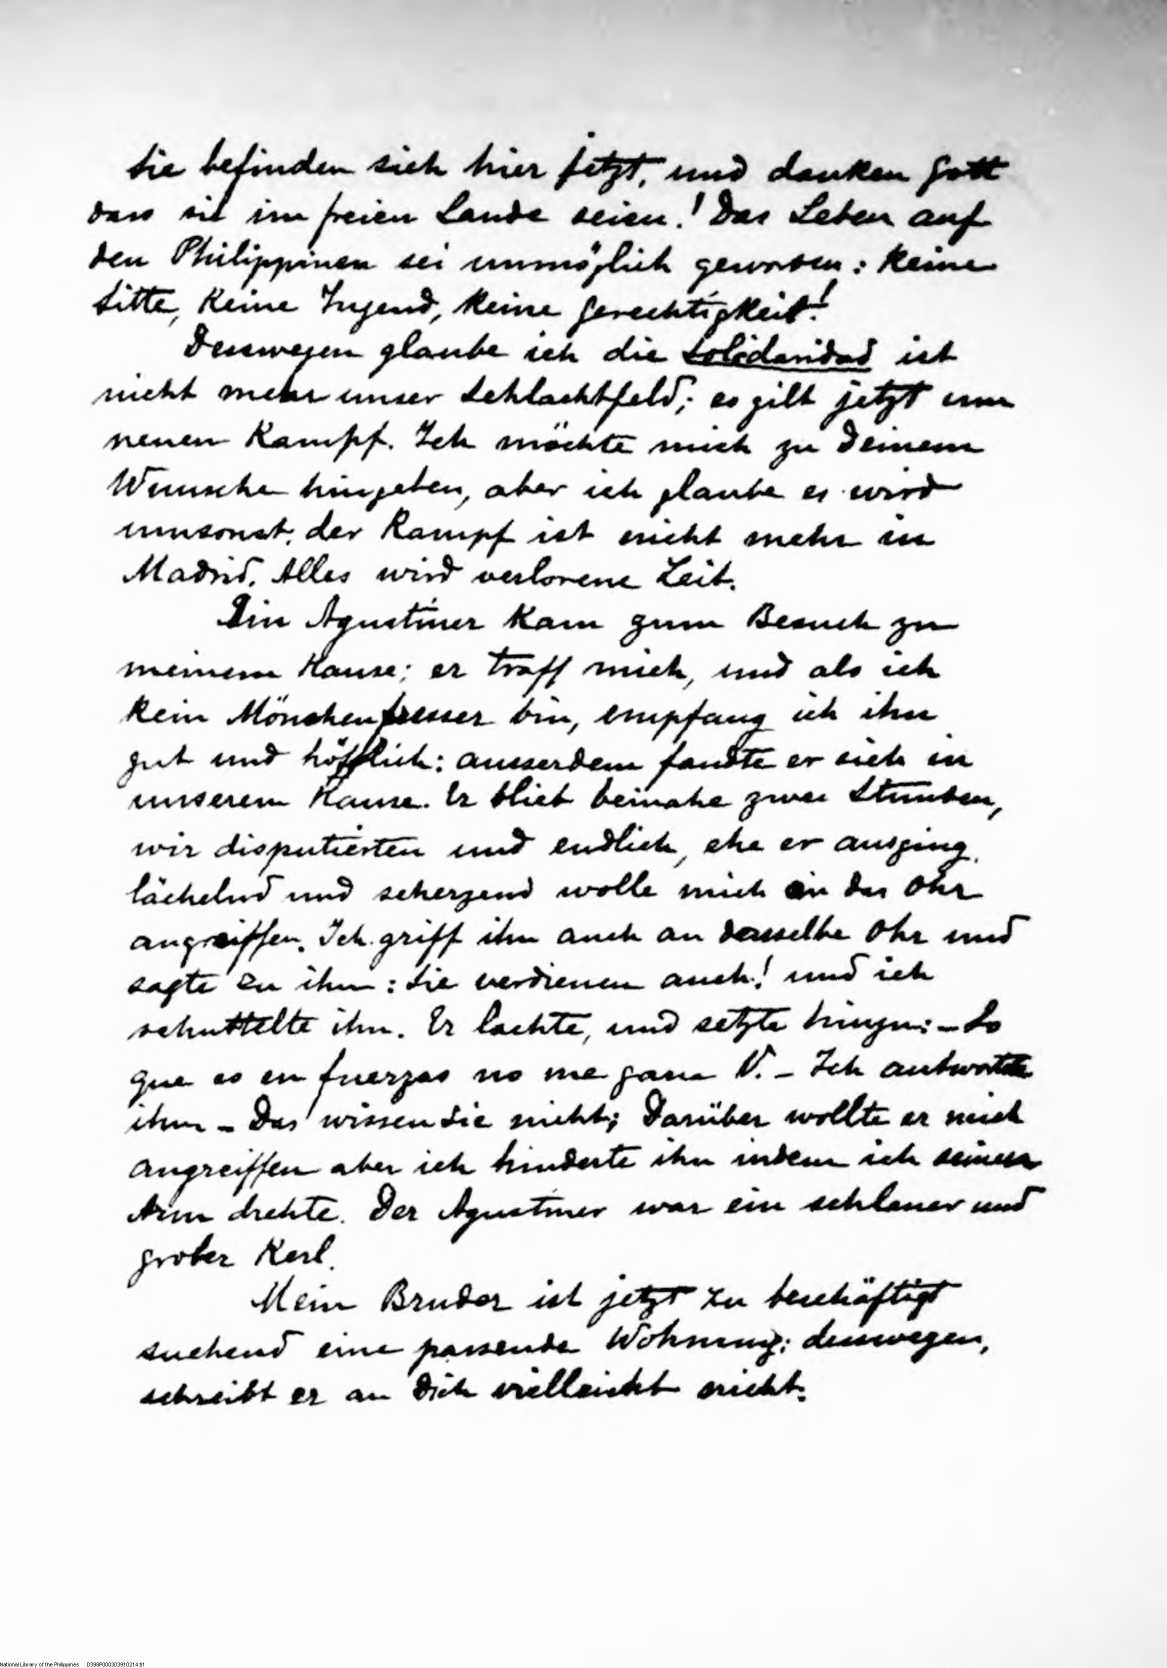 Sie befinden sich hier jetzt, und danken Gott
dass sie im freien Lande seien! Das Leben auf
den Philippinen sei unmöglich geworden: keine
Sitte, keine Tugend, keine Gerechtigkeit!
Desswegen glaube ich die Solidaridad ist
nicht mehr unser Schlachtfeld; es gilt jetzt um
neuen Kampf. Ich möchte mich zu Deinem
Wunsche hingeben, aber ich glaube es wird
umsonst, der Kampf ist nicht mehr in
Madrid. Alles wird verlorene Zeit.
Ein Agustiner kam zum Besuch zu
meinem Hause; er traff mich, und als ich
kein Mönchenfresser bin, empfang ich ihn
gut und höfflich: ausserdem fandte er sich in
unserem Hause. Er blieb beinahe zwei Stunden,
wir disputierten und endlich, ehe er ausging,
lächelnd und scherzend wolle mich an das Ohr
angreiffen. Ich griff ihn auch an dasselbe Ohr und
sagte zu ihm: Sie verdienen auch! und ich
schuttelte ihn. Er lachte, und setzte hinzu: – Lo
que es en fuerzas no me gana V. – Ich antwortete
ihm – Das wissen Sie nicht; Darüber wollte er mich
angreiffen aber ich hinderte ihn indem ich seinen
Arm drehte. Der Agustiner war ein schlauer und
grober Kerl.
Mein Bruder ist jetzt zu beschäftigt
suchend eine passende Wohnung; desswegen,
schreibt er an Dich vielleicht nicht.
National Library of the Philippines